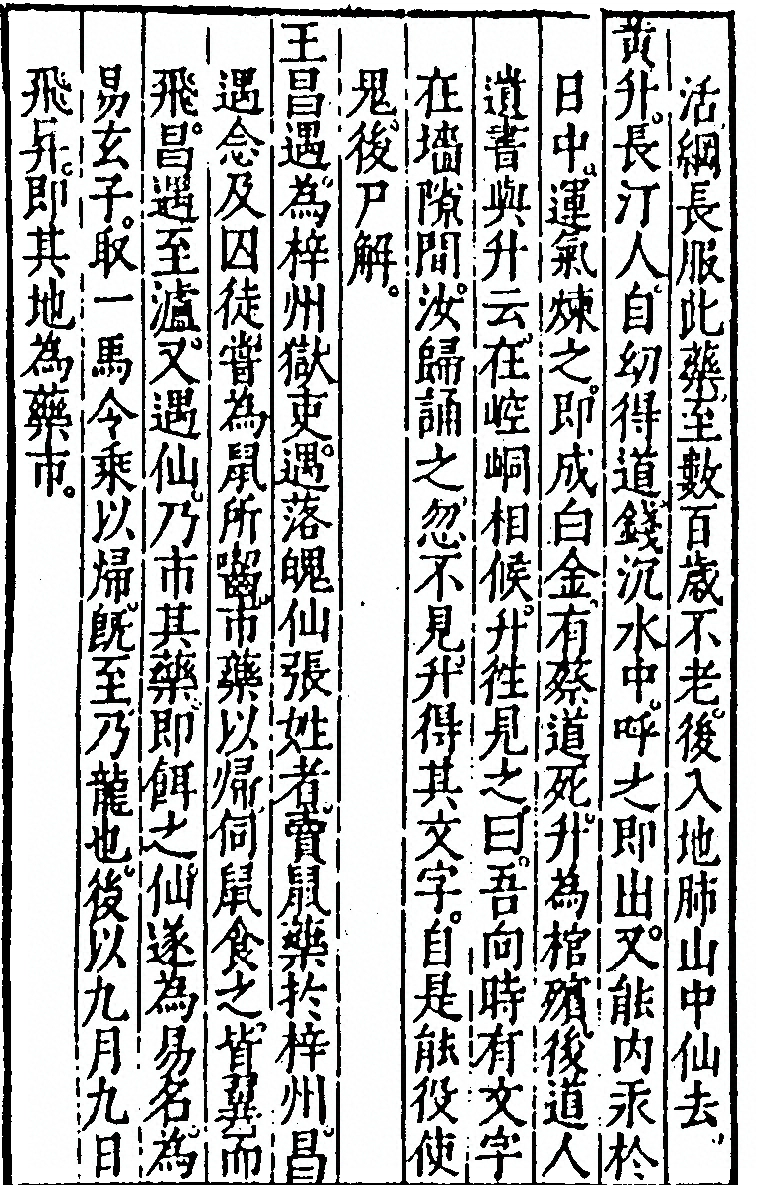 活綱長服此藥至數百歲不老。後入地肺山中仙去。
黄升。長汀人。自幼得道。錢沉水中。呼之即出。又能内汞於
日中。運氣煉之。即成白金。有蔡道死。升為棺殯。後道人
遺書與升云。在崆峒相候。升徃見之。曰。吾向時有文字
在墻隙間。汝歸誦之。忽不見。升得其文字。自是能役使
鬼。後尸解。
王昌遇。為梓州獄吏。遇落魄仙張姓者。賣鼠藥於梓州。昌
遇念及囚徒嘗為鼠所嚙。市藥以帰。伺鼠食之。皆翼而
飛。昌遇至瀘。又遇仙。乃市其藥。即餌之。仙遂為易名。為
易玄子。取一馬令乗以帰。既至。乃龍也。後以九月九日
飛昇。即其地為藥市。